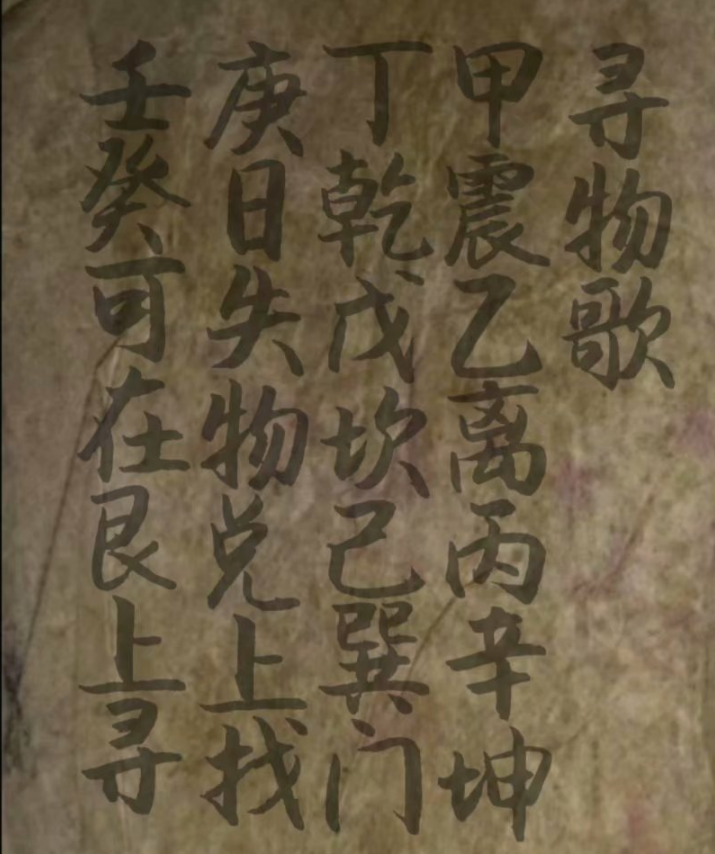 寻物歌
甲震乙离丙辛坤
丁乾戊坎己巽门
庚日失物兑上找
壬癸可在艮上寻